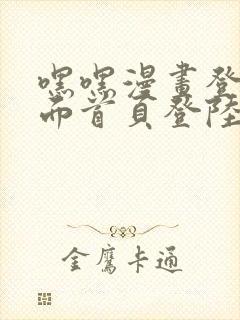 嘿嘿漫畫登
而首頁登陸
金鷹卡通